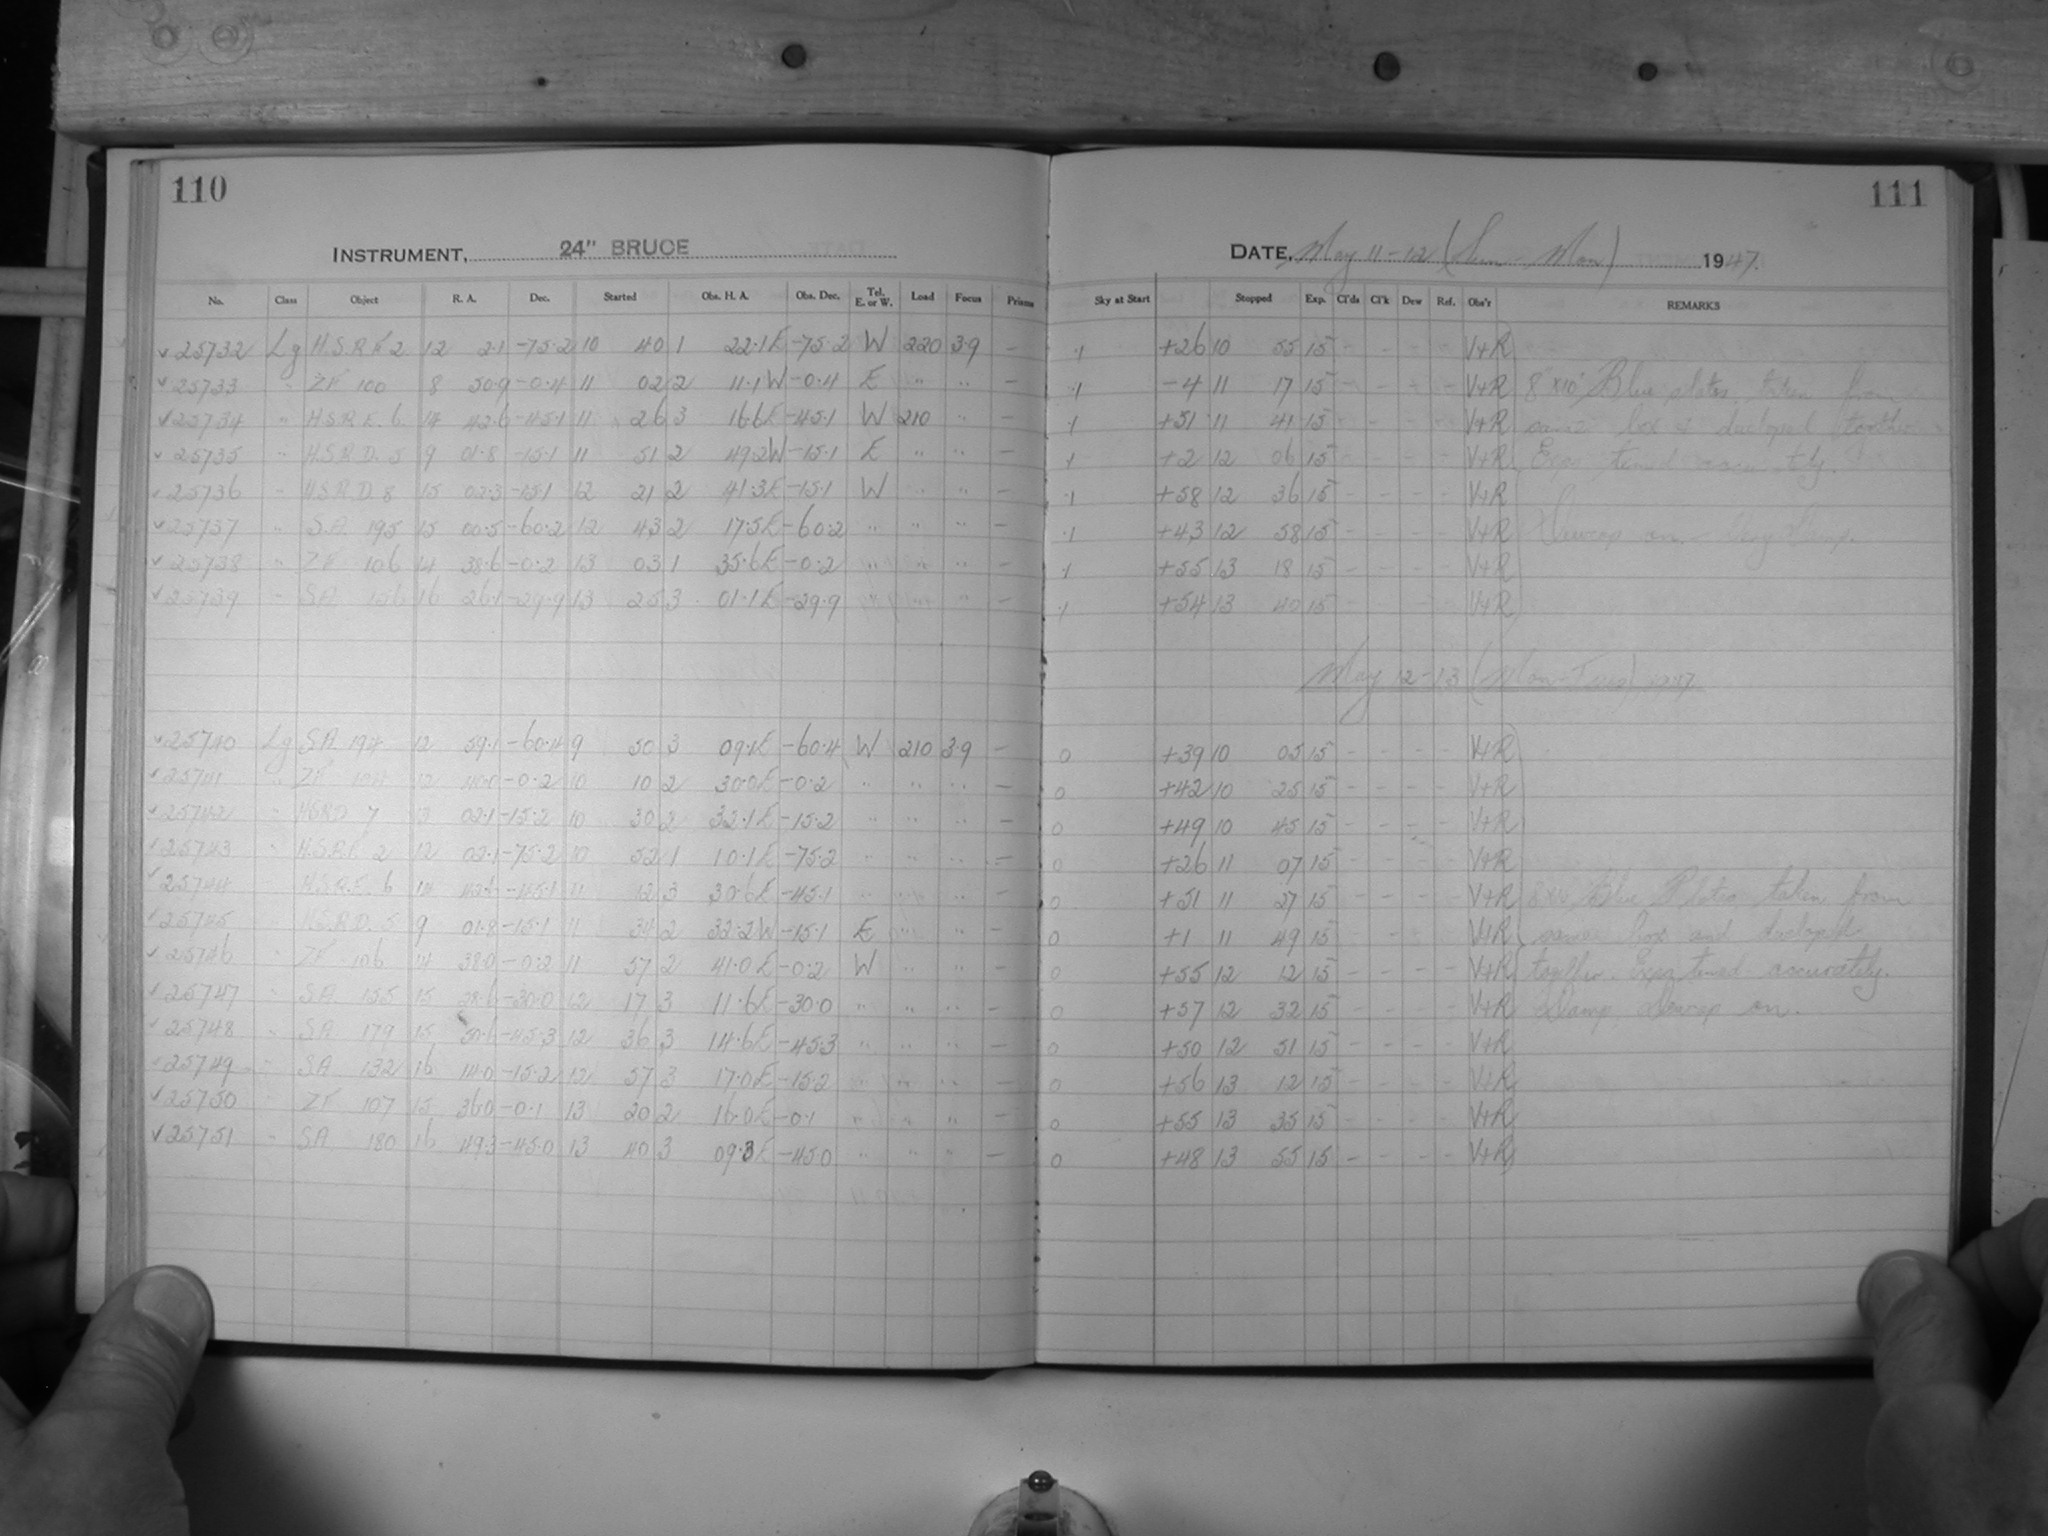 110
111
INSTRUMENT, 24" BRUCE
DATE, May 11-12 (Sun - Mon) 1947.
No. Class Object R. A. Dec. Started Obs. H. A. Obs. Dec. Tel. E. or W. Load Focus Prisms Sky at Start Stopped Exp. Cl'ds Cl'k Dew Ref. Obs'r REMARKS
✓ 25732 Lg H.S.R.F. 2 12 2.1 -75.2 10 40 1 22.1E -75.2 W 220 3.9 - .1 +26 10 55 15 - - - - V+R
✓ 25733 " ZF 100 8 50.9 -0.4 11 02 2 11.1W -0.4 E " " - .1 -4 11 17 15 - - - - V+R 8"x10" Blue plates taken from
✓ 25734 " H.S.R.F. 6 14 42.6 -45.1 11 26 3 16.6E -45.1 W 210 " - .1 +51 11 41 15 - - - - V+R same box & developed together
✓ 25735 " H.S.R.D. 5 9 01.8 -15.1 11 51 2 49.2W -15.1 E " " - .1 +2 12 06 15 - - - - V+R Exps timed accurately.
✓ 25736 " H.S.R.D. 8 15 02.3 -15.1 12 21 2 41.3E -15.1 W " " - .1 +58 12 36 15 - - - - V+R
✓ 25737 " S.A. 195 15 00.5 -60.2 12 43 2 17.5E -60.2 " " " - .1 +43 12 58 15 - - - - V+R Dewcap on. - Very Damp.
✓ 25738 " ZF 106 14 38.6 -0.2 13 03 1 35.6E -0.2 " " " - .1 +55 13 18 15 - - - - V+R
✓ 25739 " SA 156 16 26.1 -29.9 13 25 3 01.1E -29.9 " " " - .1 +54 13 40 15 - - - - V+R
May 12-13 (Mon-Tues) 1947
✓ 25740 Lg SA 194 12 59.1 -60.4 9 50 3 09.1E -60.4 W 210 3.9 - 0 +39 10 05 15 - - - - V+R
✓ 25741 " ZF 104 12 40.0 -0.2 10 10 2 30.0E -0.2 " " " - 0 +42 10 25 15 - - - - V+R
✓ 25742 " HSRD 7 13 02.1 -15.2 10 30 2 32.1E -15.2 " " " - 0 +49 10 45 15 - - - - V+R
✓ 25743 " H.S.R.F. 2 12 02.1 -75.2 10 52 1 10.1E -75.2 " " " - 0 +26 11 07 15 - - - - V+R
✓ 25744 " H.S.R.F. 6 14 42.6 -45.1 11 12 3 30.6E -45.1 " " " - 0 +51 11 27 15 - - - - V+R 8x10 Blue Plates taken from
✓ 25745 " H.S.R.D. 5 9 01.8 -15.1 11 34 2 32.2W -15.1 E " " - 0 +1 11 49 15 - - - - V+R same box and developed
✓ 25746 " ZF 106 14 38.0 -0.2 11 57 2 41.0E -0.2 W " " - 0 +55 12 12 15 - - - - V+R together. Exps timed accurately.
✓ 25747 " SA 155 15 28.6 -30.0 12 17 3 11.6E -30.0 " " " - 0 +57 12 32 15 - - - - V+R Damp, Dewcap on.
✓ 25748 " SA 179 15 50.6 -45.3 12 36 3 14.6E -45.3 " " " - 0 +50 12 51 15 - - - - V+R
✓ 25749 " SA 132 16 14.0 -15.2 12 57 3 17.0E -15.2 " " " - 0 +56 13 12 15 - - - - V+R
✓ 25750 " ZF 107 15 36.0 -0.1 13 20 2 16.0E -0.1 " " " - 0 +55 13 35 15 - - - - V+R
✓ 25751 " SA 180 16 49.3 -45.0 13 40 3 09.3E -45.0 " " " - 0 +48 13 55 15 - - - - V+R